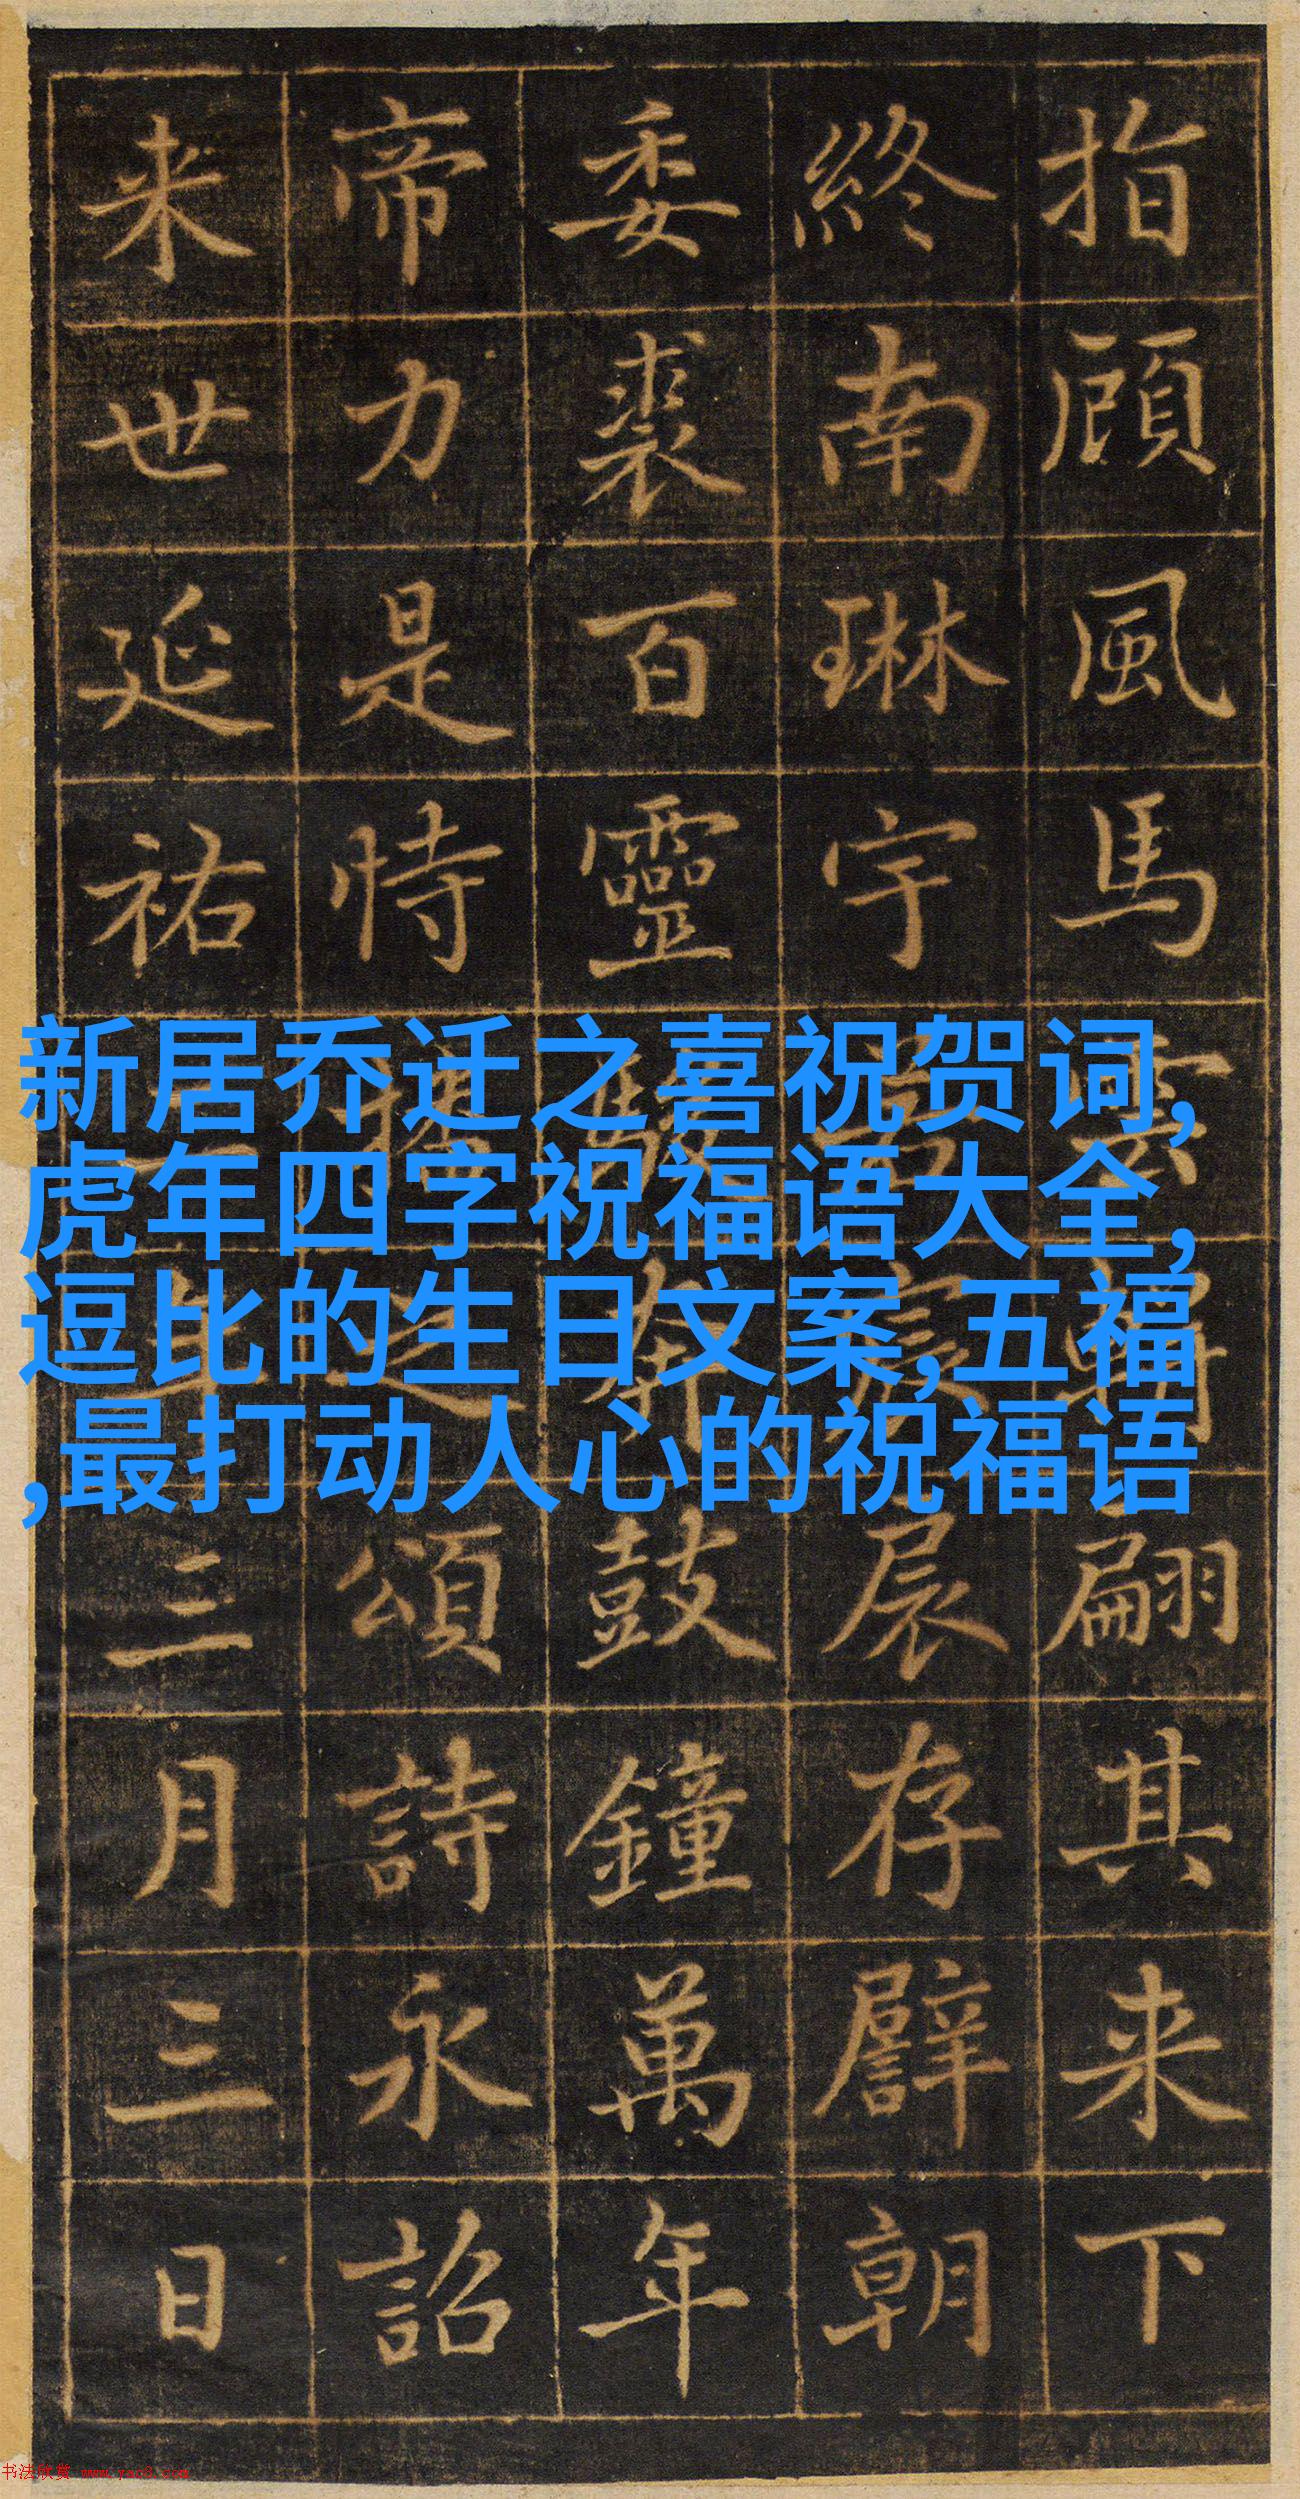 指顧風馬雲翩其来下
終南琳宇展存譬朝
委裘百靈駿奔鼓鐘萬年
帝力是恃播之頌詩永詔
来世延祐二年三月三日
新居乔迁之喜祝贺词,
虎年四字祝福语大全,
逗比的生日文案,五福
,最打动人心的祝福语
书法欣赏 www.yac8.com